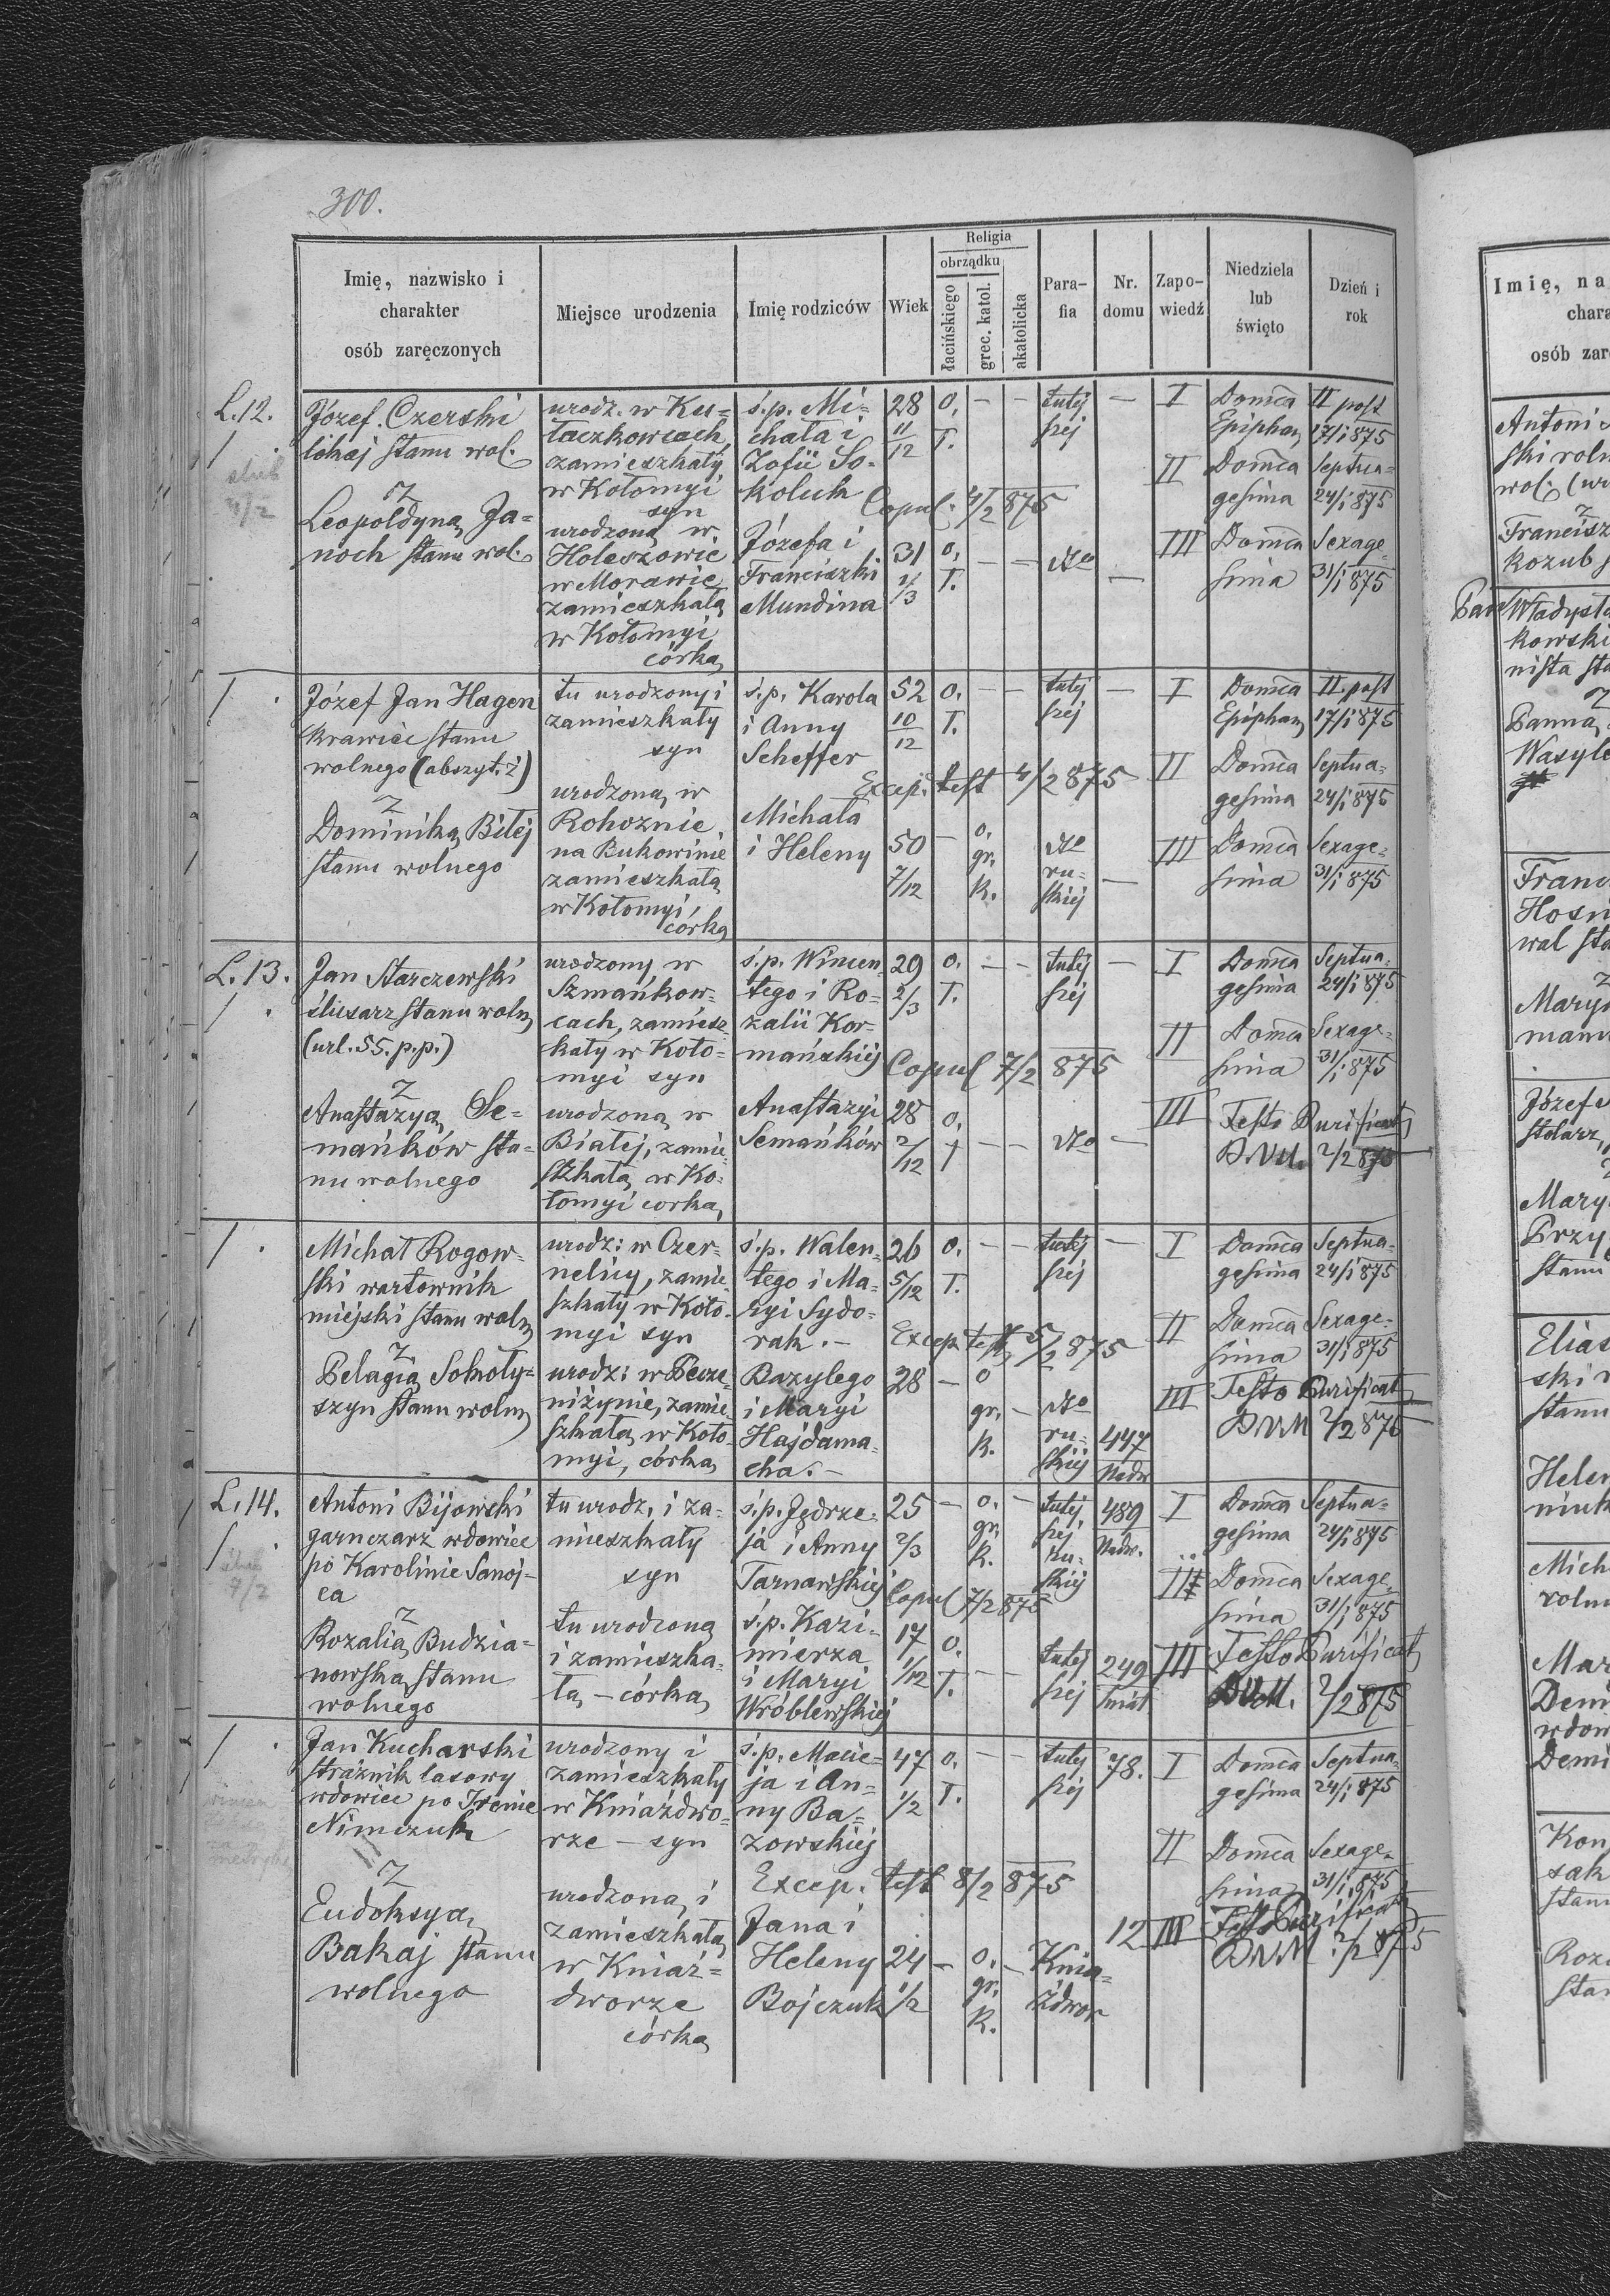 300.
Imię, nazwisko i
charakter
osób zaręczonych
Miejsce urodzenia
Imię rodziców
Wiek
Religia
obrządku
łacińskiego
grec. katol.
akatolicka
Para-
fia
Nr.
domu
Zapo-
wiedź
Niedziela
lub
święto
Dzień i
rok
L.12.
Józef Czerski
lokaj stanu wol.
z
Leopoldyną Ja-
noch stanu wol.
urodz. w Ku-
łaczkowcach
zamieszkały
w Kołomyi
syn
urodzona w
Holeszowic
w Morawie
zamieszkała
w Kołomyi
córka
ś.p. Mi-
chała i
Zofii So-
koluk
Józefa i
Franciszki
Mundina
28
11/12
31
1/3
o. – –
ł.
o. – –
ł.
Copul. 4/2 875
tutej
szej
dto
–
–
I Domca II post
Epiphan 17/1 875
II Domca Septua-
gesima 24/1 875
III Domca Sexage-
sima 31/1 875
ślub
4/2
Józef Jan Hagen
krawiec stanu
wolnego (abszyt. ż)
z
Dominiką Biłej
stanu wolnego
tu urodzony i
zamieszkały
syn
urodzona w
Rohoznie
na Bukowinie
zamieszkała
w Kołomyi,
córka
ś.p. Karola
i Anny
Scheffer
Michała
i Heleny
52
10/12
50
7/12
o. – –
ł.
– o.
gr.
k.
Excep. test 4/2 875
tutej
szej
dto
ru-
skiej
–
–
I Domca II. post
Epiphan 17/1 875
II Domca Septua-
gesima 24/1 875
III Domca Sexage-
sima 31/1 875
L.13.
Jan Starczewski
ślusarz stanu woln
(url. 55. p.p.)
z
Anastazyą Se-
mańków sta-
nu wolnego
urodzony w
Szmańkow-
cach, zamiesz-
kały w Koło-
myi syn
urodzona w
Białej, zamie-
szkała w Ko-
łomyi corka
ś.p. Wincen-
tego i Ro-
zalii Kor-
mańskiej
Anastazyi
Semańków
29
2/3
28
2/12
o. – –
ł.
o. – –
ł
Copul 7/2 875
tutej
szej
dto
–
–
I Domca Septua-
gesima 24/1 875
II Domca Sexage-
sima 31/1 875
III Festo Purificat
B.V.M. 2/2 875
Michał Rogow-
ski wartownik
miejski stanu woln
z
Pelagią Sokoły-
szyn stanu woln
urodz: w Czer-
nelicy, zamie-
szkały w Koło-
myi syn
urodz: w Pecze-
niżynie, zamie-
szkała w Koło-
myi, córka
ś.p. Walen-
tego i Ma-
ryi Sydo-
rak. –
Bazylego
i Maryi
Hajdama-
cha. –
26
5/12
28
o. – –
ł.
– o –
gr.
k.
Excep test 5/2 875
tutej
szej
dto
ru-
skiej
–
447
Nadw
I Domca Septua-
gesima 24/1 875
II Domca Sexage-
sima 31/1 875
III Festo Purificat
B.V.M 2/2 875
L.14.
Antoni Bijowski
garnczarz wdowiec
po Karolinie Sanoj-
ca
z
Rozalią Budzia-
nowską stanu
wolnego
tu urodz. i za-
mieszkały
syn
tu urodzona
i zamieszka-
ła – córka
ś.p. Jędrze-
ja i Anny
Tarnawskiej
ś.p. Kazi-
mierza
i Maryi
Wróblewskiej
25
2/3
17
1/12
– o. –
gr.
k.
o. – –
ł.
Copul 7/2 875
tutej.
szej
ru-
skiej
tutej
szej
489
Nadw.
249
I Domca Septua-
gesima 24/1 875
II Domca Sexage-
sima 31/1 875
III Festo Purificat
B.V.M. 2/2 875
7/2
Jan Kucharski
strażnik lasowy
wdowiec po Irenie
Nimczuk
z
Eudoksyą
Bakaj stanu
wolnego
urodzony i
zamieszkały
w Kniaźdwo-
rze – syn
urodzona i
zamieszkała
w Kniaź-
dworze
córka
ś.p. Macie-
ja i An-
ny Ba-
zowskiej
Jana i
Heleny
Bojczuk
47
1/2
24
1/2
o. – –
ł.
– o. –
gr.
k.
Excep. test 8/2 875
tutej
szej
Knia-
ździwor
78.
12
I Domca Septua-
gesima 24/1 875
II Domca Sexage-
sima 31/1 875
III Festo Purificat
B.V.M 2/2 875
Imię, na
chara
osób zar
Antoni
ski roln
wol.
z
Francisz
kozub
Władysła
kowski
nista sta
z
Panna
Wasyle
Franc
Hosn
wal sta
z
Mary
mann
Józef
stolarz
Mary
Przy
stanu
Elias
ski
stanu
Helen
niuk
Mich
roln
Mar
Dem
wdow
Demi
Kon
sak
stan
Roza
stan